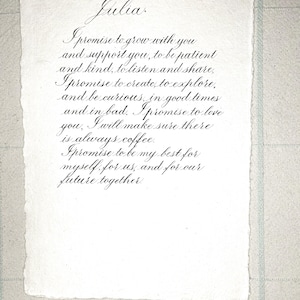 Julia
I promise to grow with you
and support you, to be patient
and kind, to listen and share,
I promise to create, to explore,
and be curious, in good times
and in bad. I promise to love
you, I will make sure there
is always coffee.
I promise to be my best for
myself, for us, and for our
future together.